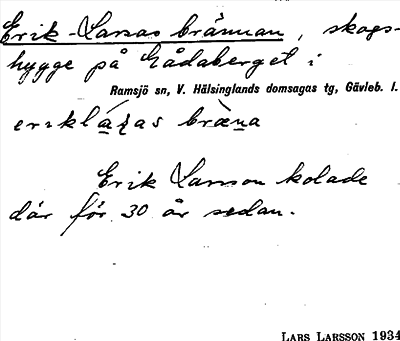 Erik-Larsas brännan, skogs-
hygge på Gådaberget i
Ramsjö sn, V. Hälsinglands domsagas tg, Gävleb. l.
Erik Larsson kolade
där för 30 år sedan.
LARS LARSSON 1934